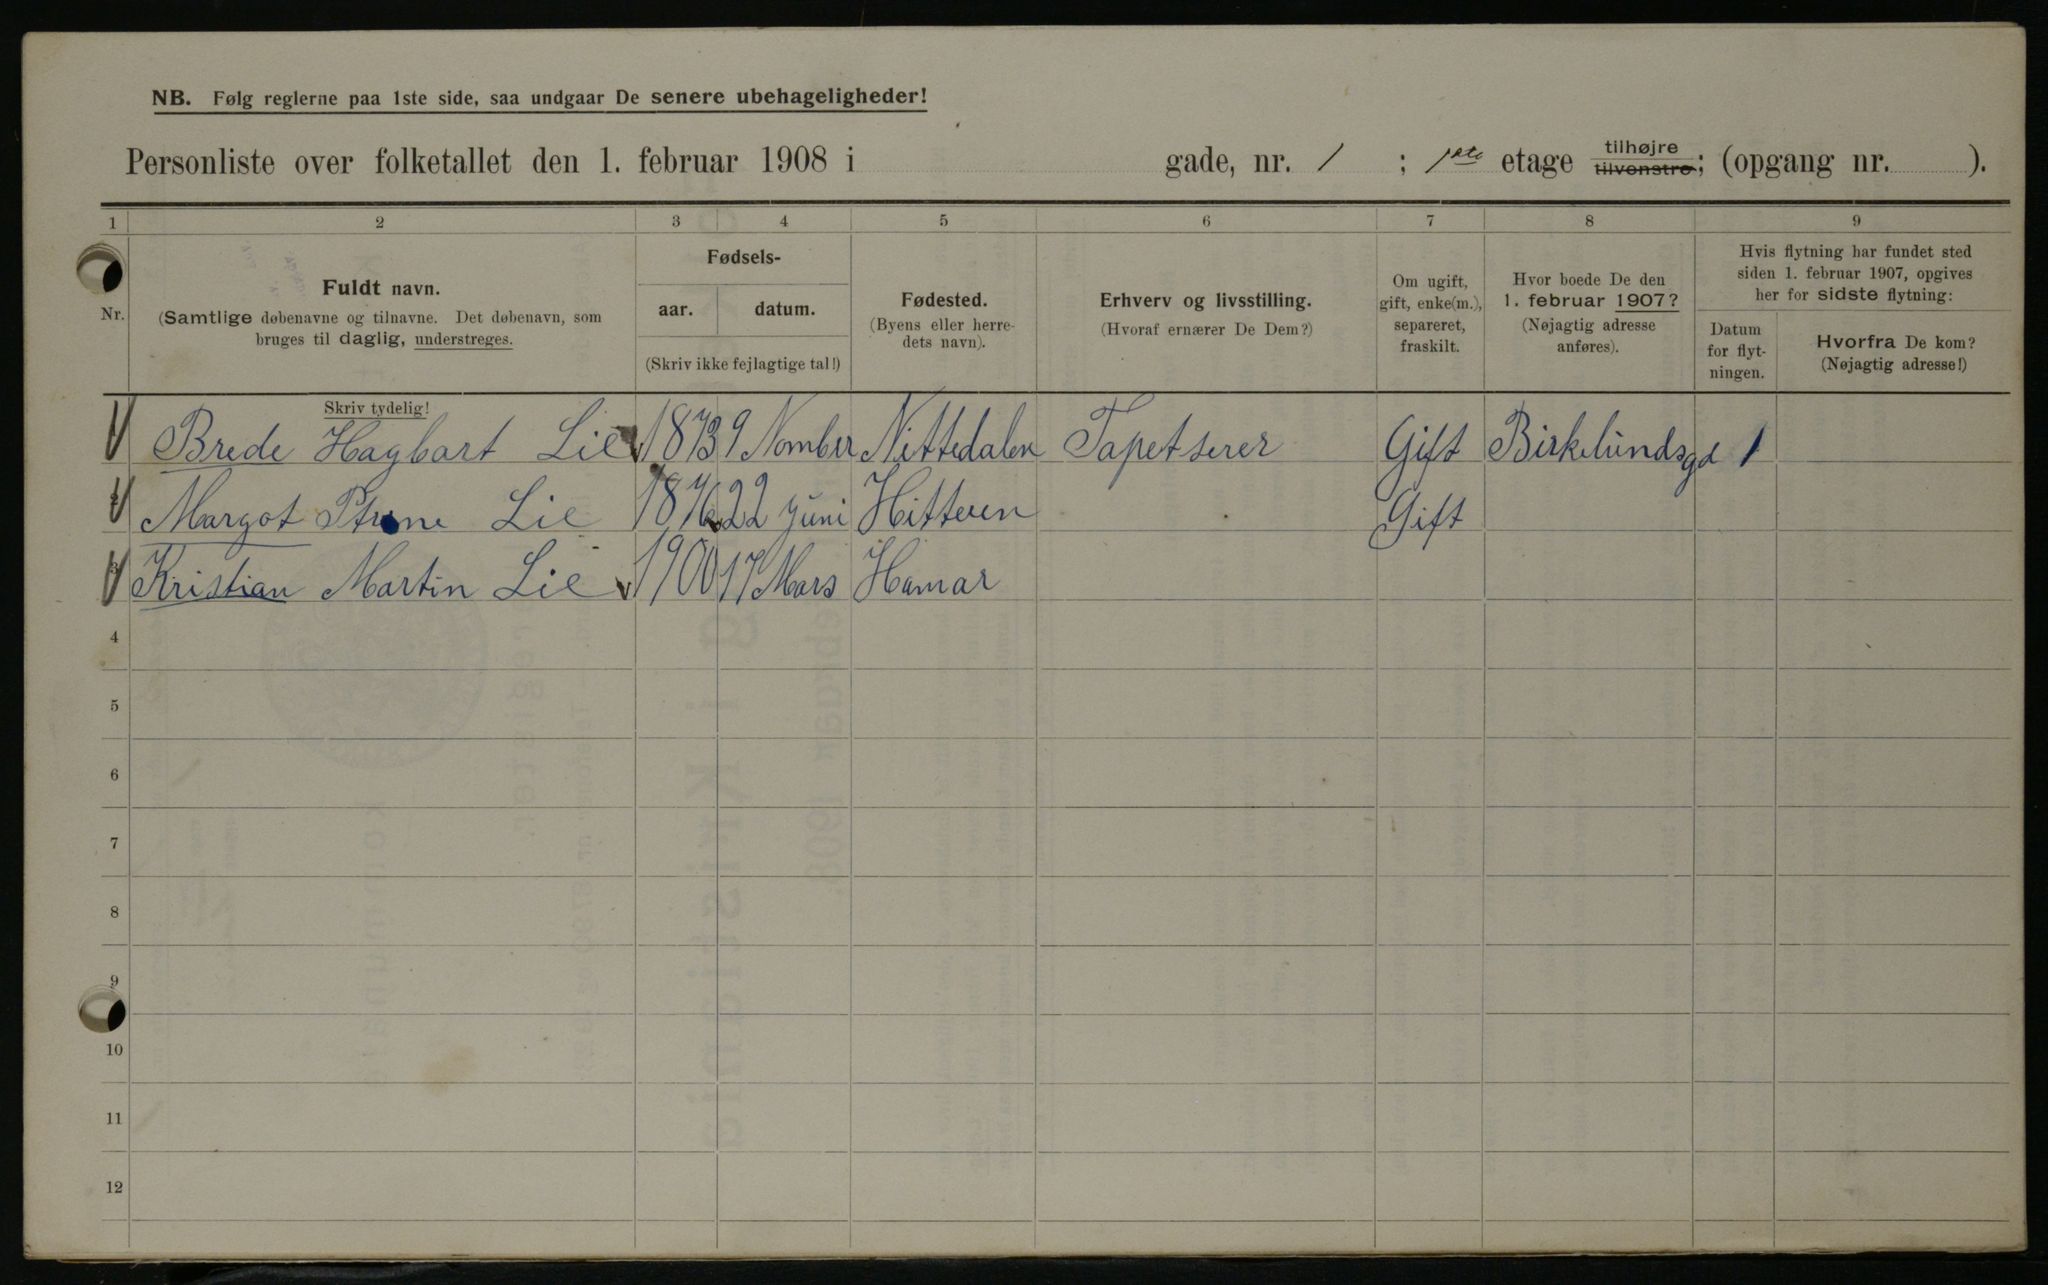 NB. Følg reglerne paa 1ste side, saa undgaar De senere ubehageligheder!
Personliste over folketallet den 1. februar 1908 i gade, nr. 1 ; 1ste etage tilhøjre tilvenstre; (opgang nr. ).
1 2 3 4 5 6 7 8 9
Nr.
Fuldt navn.
(Samtlige døbenavne og tilnavne. Det døbenavn, som
bruges til daglig, understreges.
Skriv tydelig!
Fødsels-
aar. datum.
(Skriv ikke fejlagtige tal!)
Fødested.
(Byens eller herre-
dets navn).
Erhverv og livsstilling.
(Hvoraf ernærer De Dem?)
Om ugift,
gift, enke(m.),
separeret,
fraskilt.
Hvor boede De den
1. februar 1907?
(Nøjagtig adresse
anføres).
Hvis flytning har fundet sted
siden 1. februar 1907, opgives
her for sidste flytning:
Datum
for flyt-
ningen.
Hvorfra De kom?
(Nøjagtig adresse!)
Brede Hagbart Lie 1873 9 Nomber Nittedalen Tapetserer Gift Birkelundsgd 1
Margot Lie 1876 22 juni Hitteren Gift
3 Kristian Martin Lie 1900 17 Mars Hamar
4
5
6
7
8
9
10
11
12